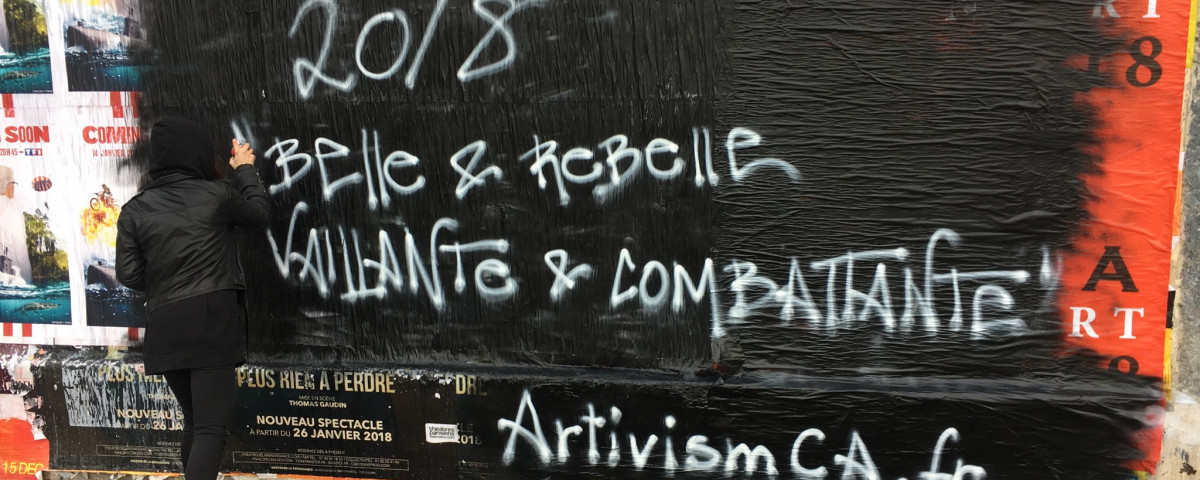 2018
"BElle & REBellE
VAILLANTE & COMBATTANTE"
ArtivismCA.fr
SOON
COMING
20H45 - TF1
PLUS RIEN À PERDRE
MISE EN SCÈNE
THOMAS GAUDIN
NOUVEAU SPECTACLE
À PARTIR DU 26 JANVIER 2018
NOUVEAU S
26 JA
15 DEC
RT
18
A
RT